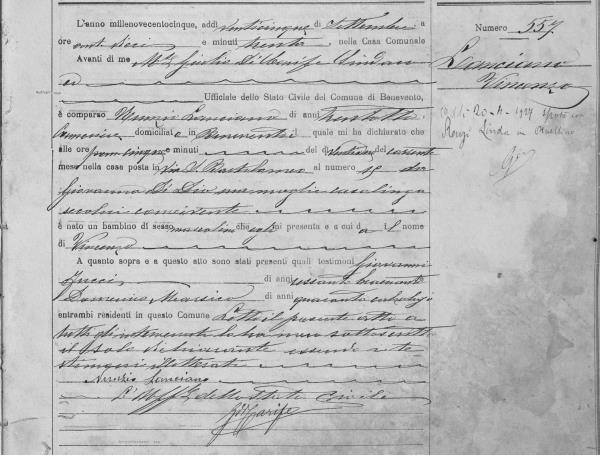 L'anno millenovecentocinque, addì venticinque di Settembre a
ore anti dieci e minuti trenta nella Casa Comunale
Avanti di me
Ufficiale dello Stato Civile del Comune di Benevento,
è comparso Nunzio Lanciano di anni trentotto
domiciliato in Benevento il quale mi ha dichiarato che
alle ore pom cinque e minuti del ventitre del corrente
mese nella casa posta in Via S. Bartolomeo al numero da
Giovanna Di Dio sua moglie casalinga
seco lui convivente
è nato un bambino di sesso mascolino che esso mi presenta e a cui dà il nome
di Vincenzo
A quanto sopra e a questo atto sono stati presenti quali testimoni Giovanni
Zucci di anni sessanta
Domenico Marsico di anni quaranta
entrambi residenti in questo Comune Letto il presente atto a
tutti gl'intervenuti l'hanno meco sottoscritto
il solo dichiarante essendo i te
stimoni illetterati
Nunzio Lanciano
L'Uffle dello Stato Civile
Numero 557
Lanciano
Vincenzo
20-4-1927 sposò con
Linda in Avellino